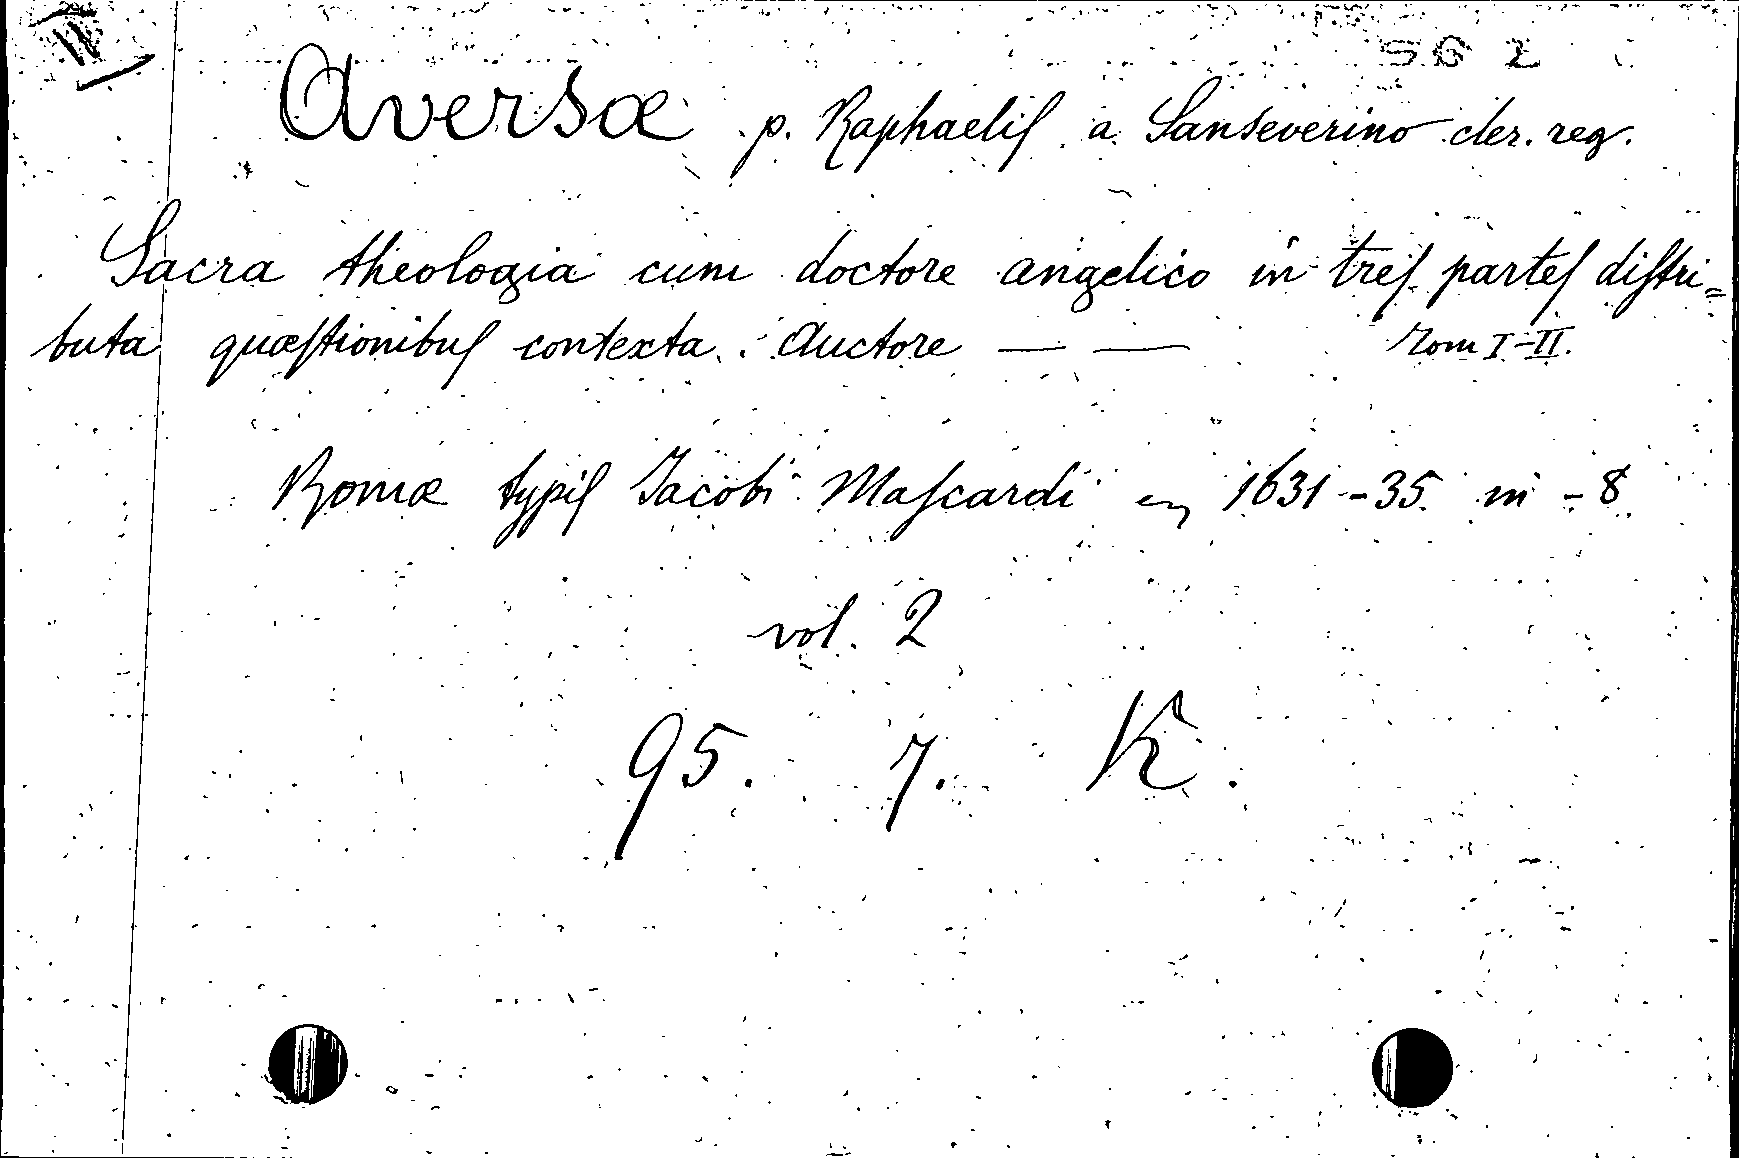 II
562
Aversæ p. Raphaelis a Sanseverino cler. reg.
Sacra theologia cum doctore angelico in tres partes distri=
buta quæstionibus contexta. Auctore — — Tom I-II.
Romæ typis Jacobi Mascardi 1631-35. in -8.
vol. 2
95. 7. K.